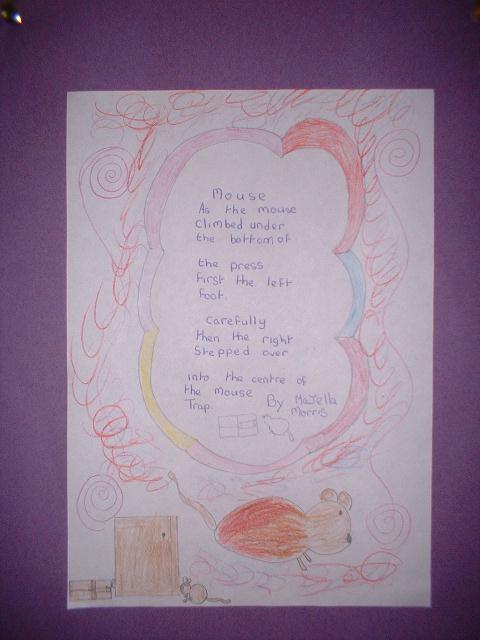 Mouse
As the mouse
climbed under
the bottom of
the press
First the left
foot.
Carefully
then the right
Stepped over
into the centre of
the mouse
Trap. By Majella
Morris